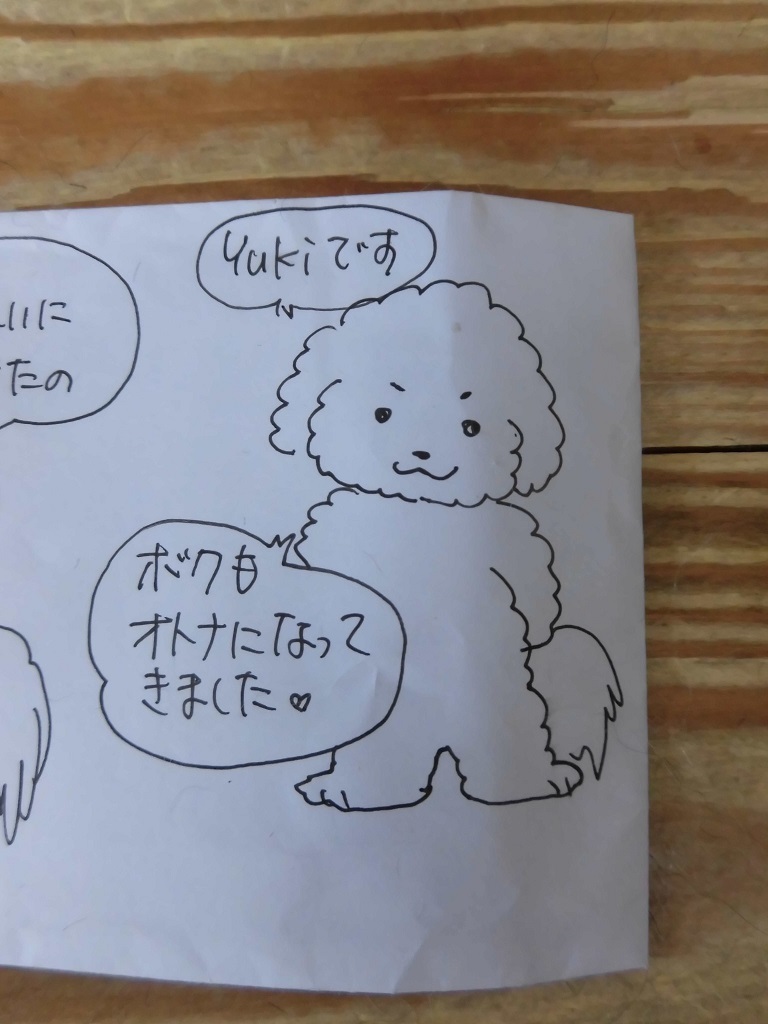 Yukiです
いに
たの
ボクも
オトナになって
きました♥